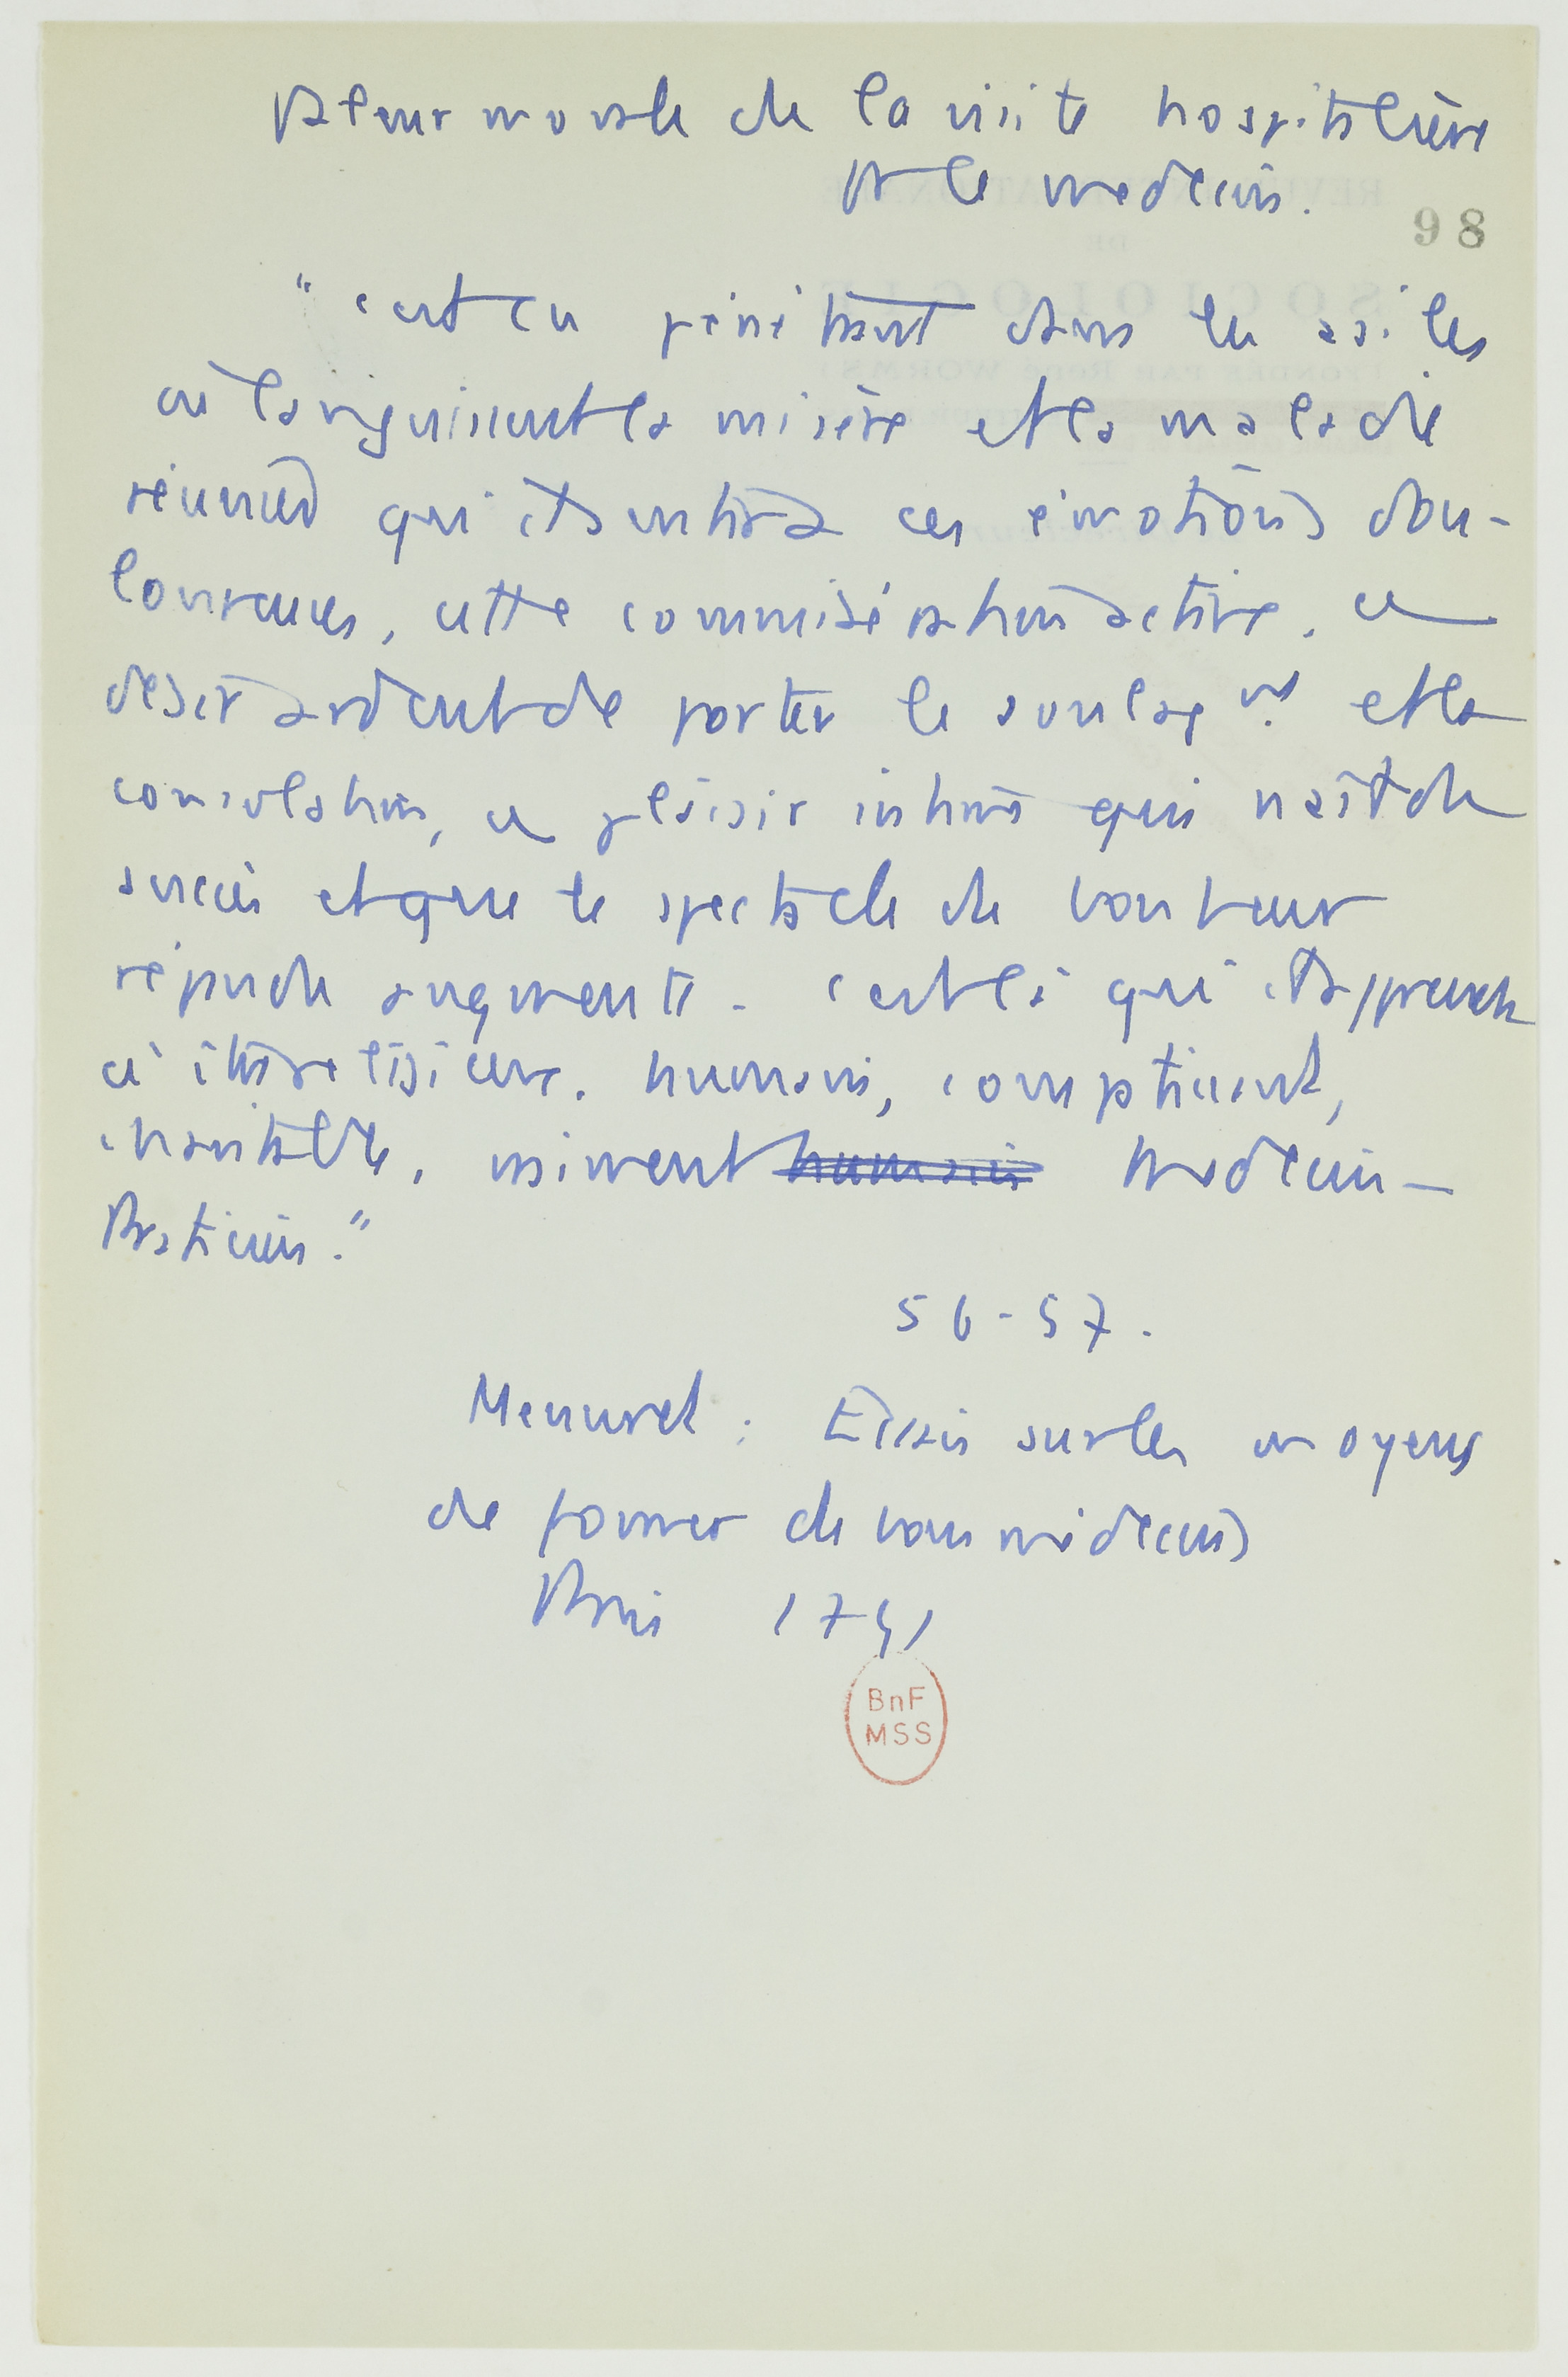 Valeur morale de la visite hospitalière
pr le médecin.
98
"C'est en pénétrant dans les asiles
où languissent la misère et la maladie
réunies qu'il sentira ces émotions dou-
loureuses, cette commisération active, ce
désir ardent de porter le soulagt et la
consolation, ce plaisir intime qui naît du
succès et que le spectacle du bonheur
répandu augmente. C'est là qu'il apprendra
à être religieux, humain, compatissant,
charitable, vraiment humain Médecin-
Praticien."
56-57.
Menuret : Essai sur les moyens
de former de bons médecins
Paris 1791
BnF
MSS